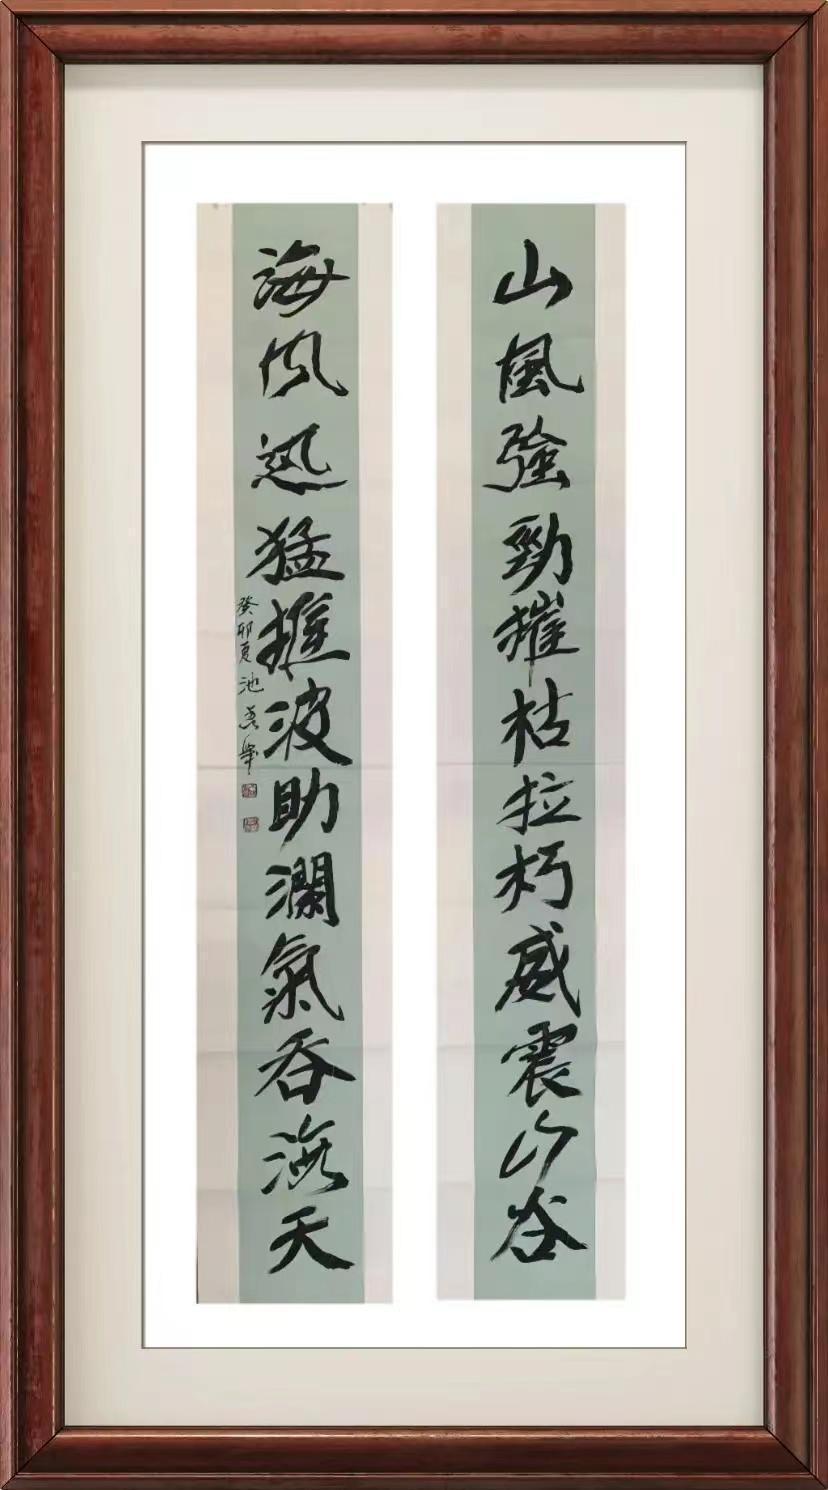 山風強勁摧枯拉朽威震山谷
海风迅猛推波助瀾氣吞海天
癸卯夏池